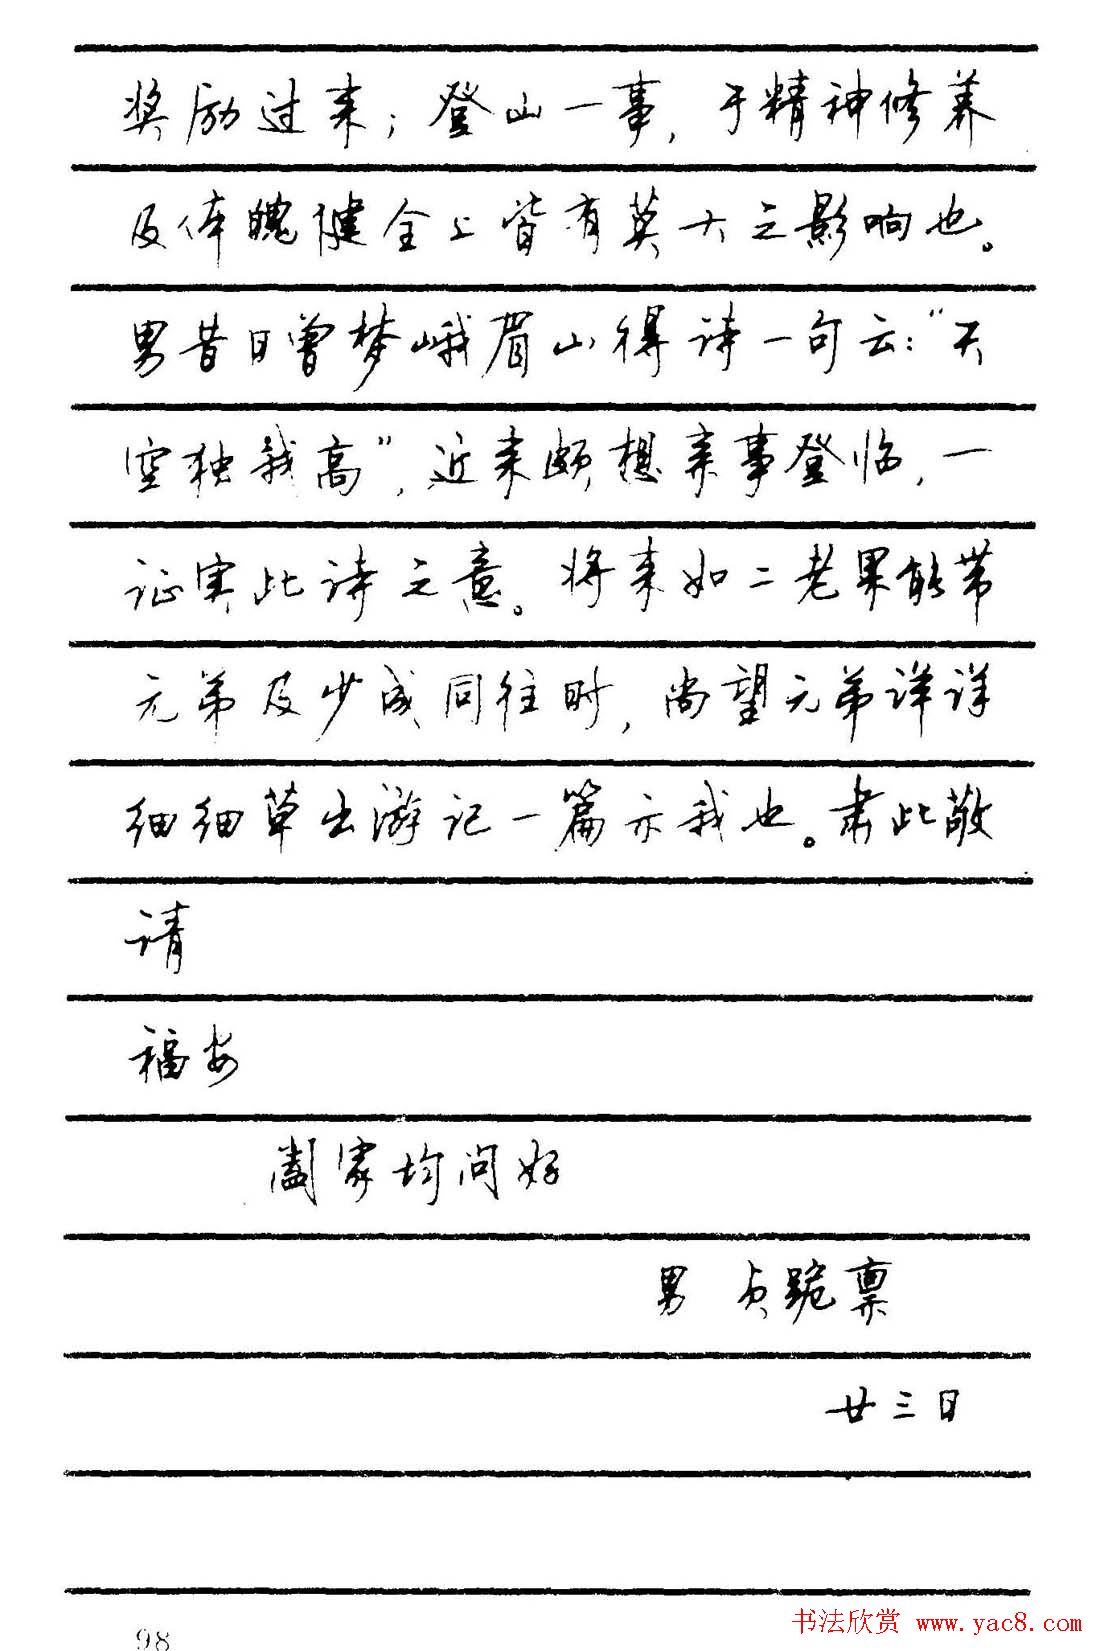 奖励过来；登山一事，于精神修养
及体魄健全上皆有莫大之影响也。
男昔日曾梦峨眉山得诗一句云：“天
空独我高”，近来颇想来事登临，一
证实此诗之意。将来如二老果能带
元弟及少成同往时，尚望元弟详详
细细草出游记一篇示我也。肃此敬
请
福安
阖家均问好
男 贞跪禀
廿三日
98
书法欣赏 www.yac8.com